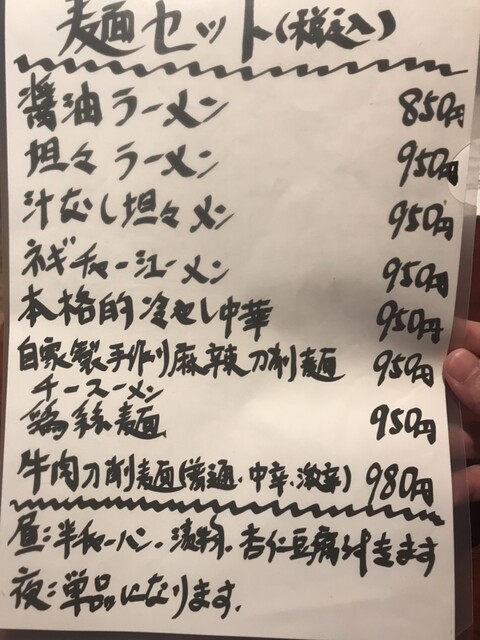 麺セット(税込)
醤油ラーメン 850円
坦々ラーメン 950円
汁なし坦々メン 950円
ネギチャーシューメン 950円
本格的冷やし中華 950円
自家製手作り麻辣刀削麺 950円
チースーメン
鶏絲麺 950円
牛肉刀削麺(普通・中辛・激辛) 980円
昼:半チャーハン・漬物・杏仁豆腐付きます
夜:単品になります。